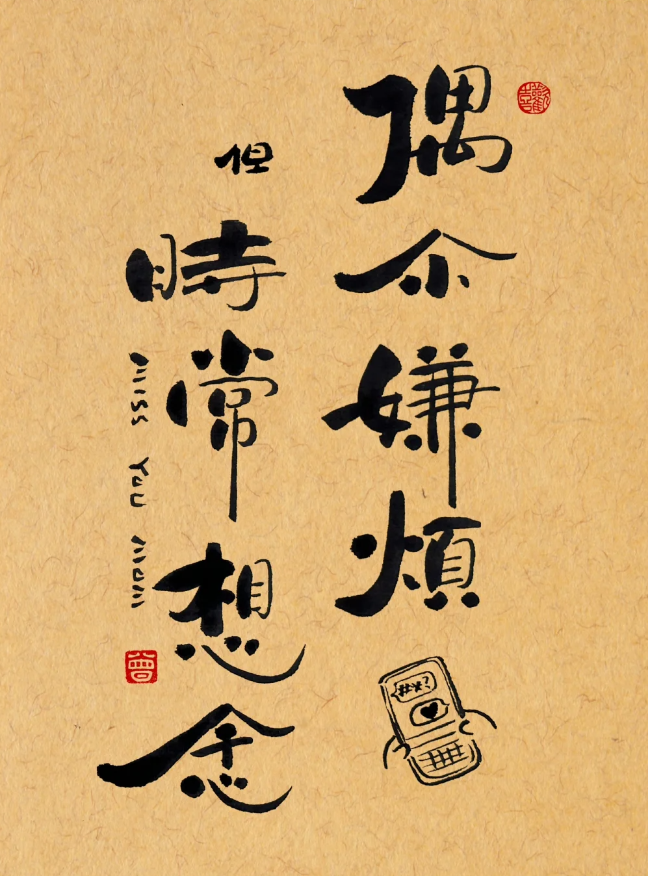 歡喜
偶尒嫌煩
但時常想念
miss You mom
曾
#*?